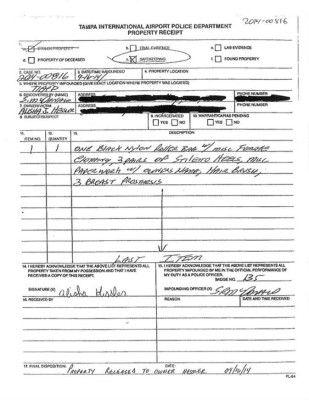 2014-00816
TAMPA INTERNATIONAL AIRPORT POLICE DEPARTMENT
PROPERTY RECEIPT
b. TRIAL EVIDENCE
e. LAB EVIDENCE
c. PROPERTY OF DECEASED
d. SAFEKEEPING
f. FOUND PROPERTY
2. CASE NO.
2014-00816
3. DATE/TIME IMPOUNDED
4. PROPERTY LOCATION
5. WHERE PROPERTY IMPOUNDED (GIVE EXACT LOCATION WHERE PROPERTY WAS LOCATED)
6. DISCOVERED BY (NAME)
ADDRESS
PHONE NUMBER
7. OWNER/VICTIM
ADDRESS
PHONE NUMBER
8. SUBJECT/SUSPECT
9. IN CUSTODY/CITED
YES NO
10. WARRANT/CAPIAS PENDING
YES NO
11. ITEM NO.
12. QUANTITY
13. DESCRIPTION
1 1 ONE BLACK NYLON ROLLER BAG W/ MISC FEMALE
CLOTHING, 3 PAIRS OF STILETO HEELS, MISC.
PAPERWORK W/ OWNERS NAME, HAIR BRUSH,
3 BREAST PROSTHESIS
LAST ITEM
14. I HEREBY ACKNOWLEDGE THAT THE ABOVE LIST REPRESENTS ALL
PROPERTY TAKEN FROM MY POSSESSION AND THAT I HAVE
RECEIVED A COPY OF THIS RECEIPT.
15. I HEREBY ACKNOWLEDGE THAT THE ABOVE LIST REPRESENTS ALL
PROPERTY IMPOUNDED BY ME IN THE OFFICIAL PERFORMANCE OF
MY DUTY AS A POLICE OFFICER.
BADGE NO. 135
SIGNATURE (X)
IMPOUNDING OFFICER (X)
16. RECEIVED BY
REASON
DATE AND TIME RECEIVED
17. FINAL DISPOSITION:
DATE:
PROPERTY RELEASED TO OWNER